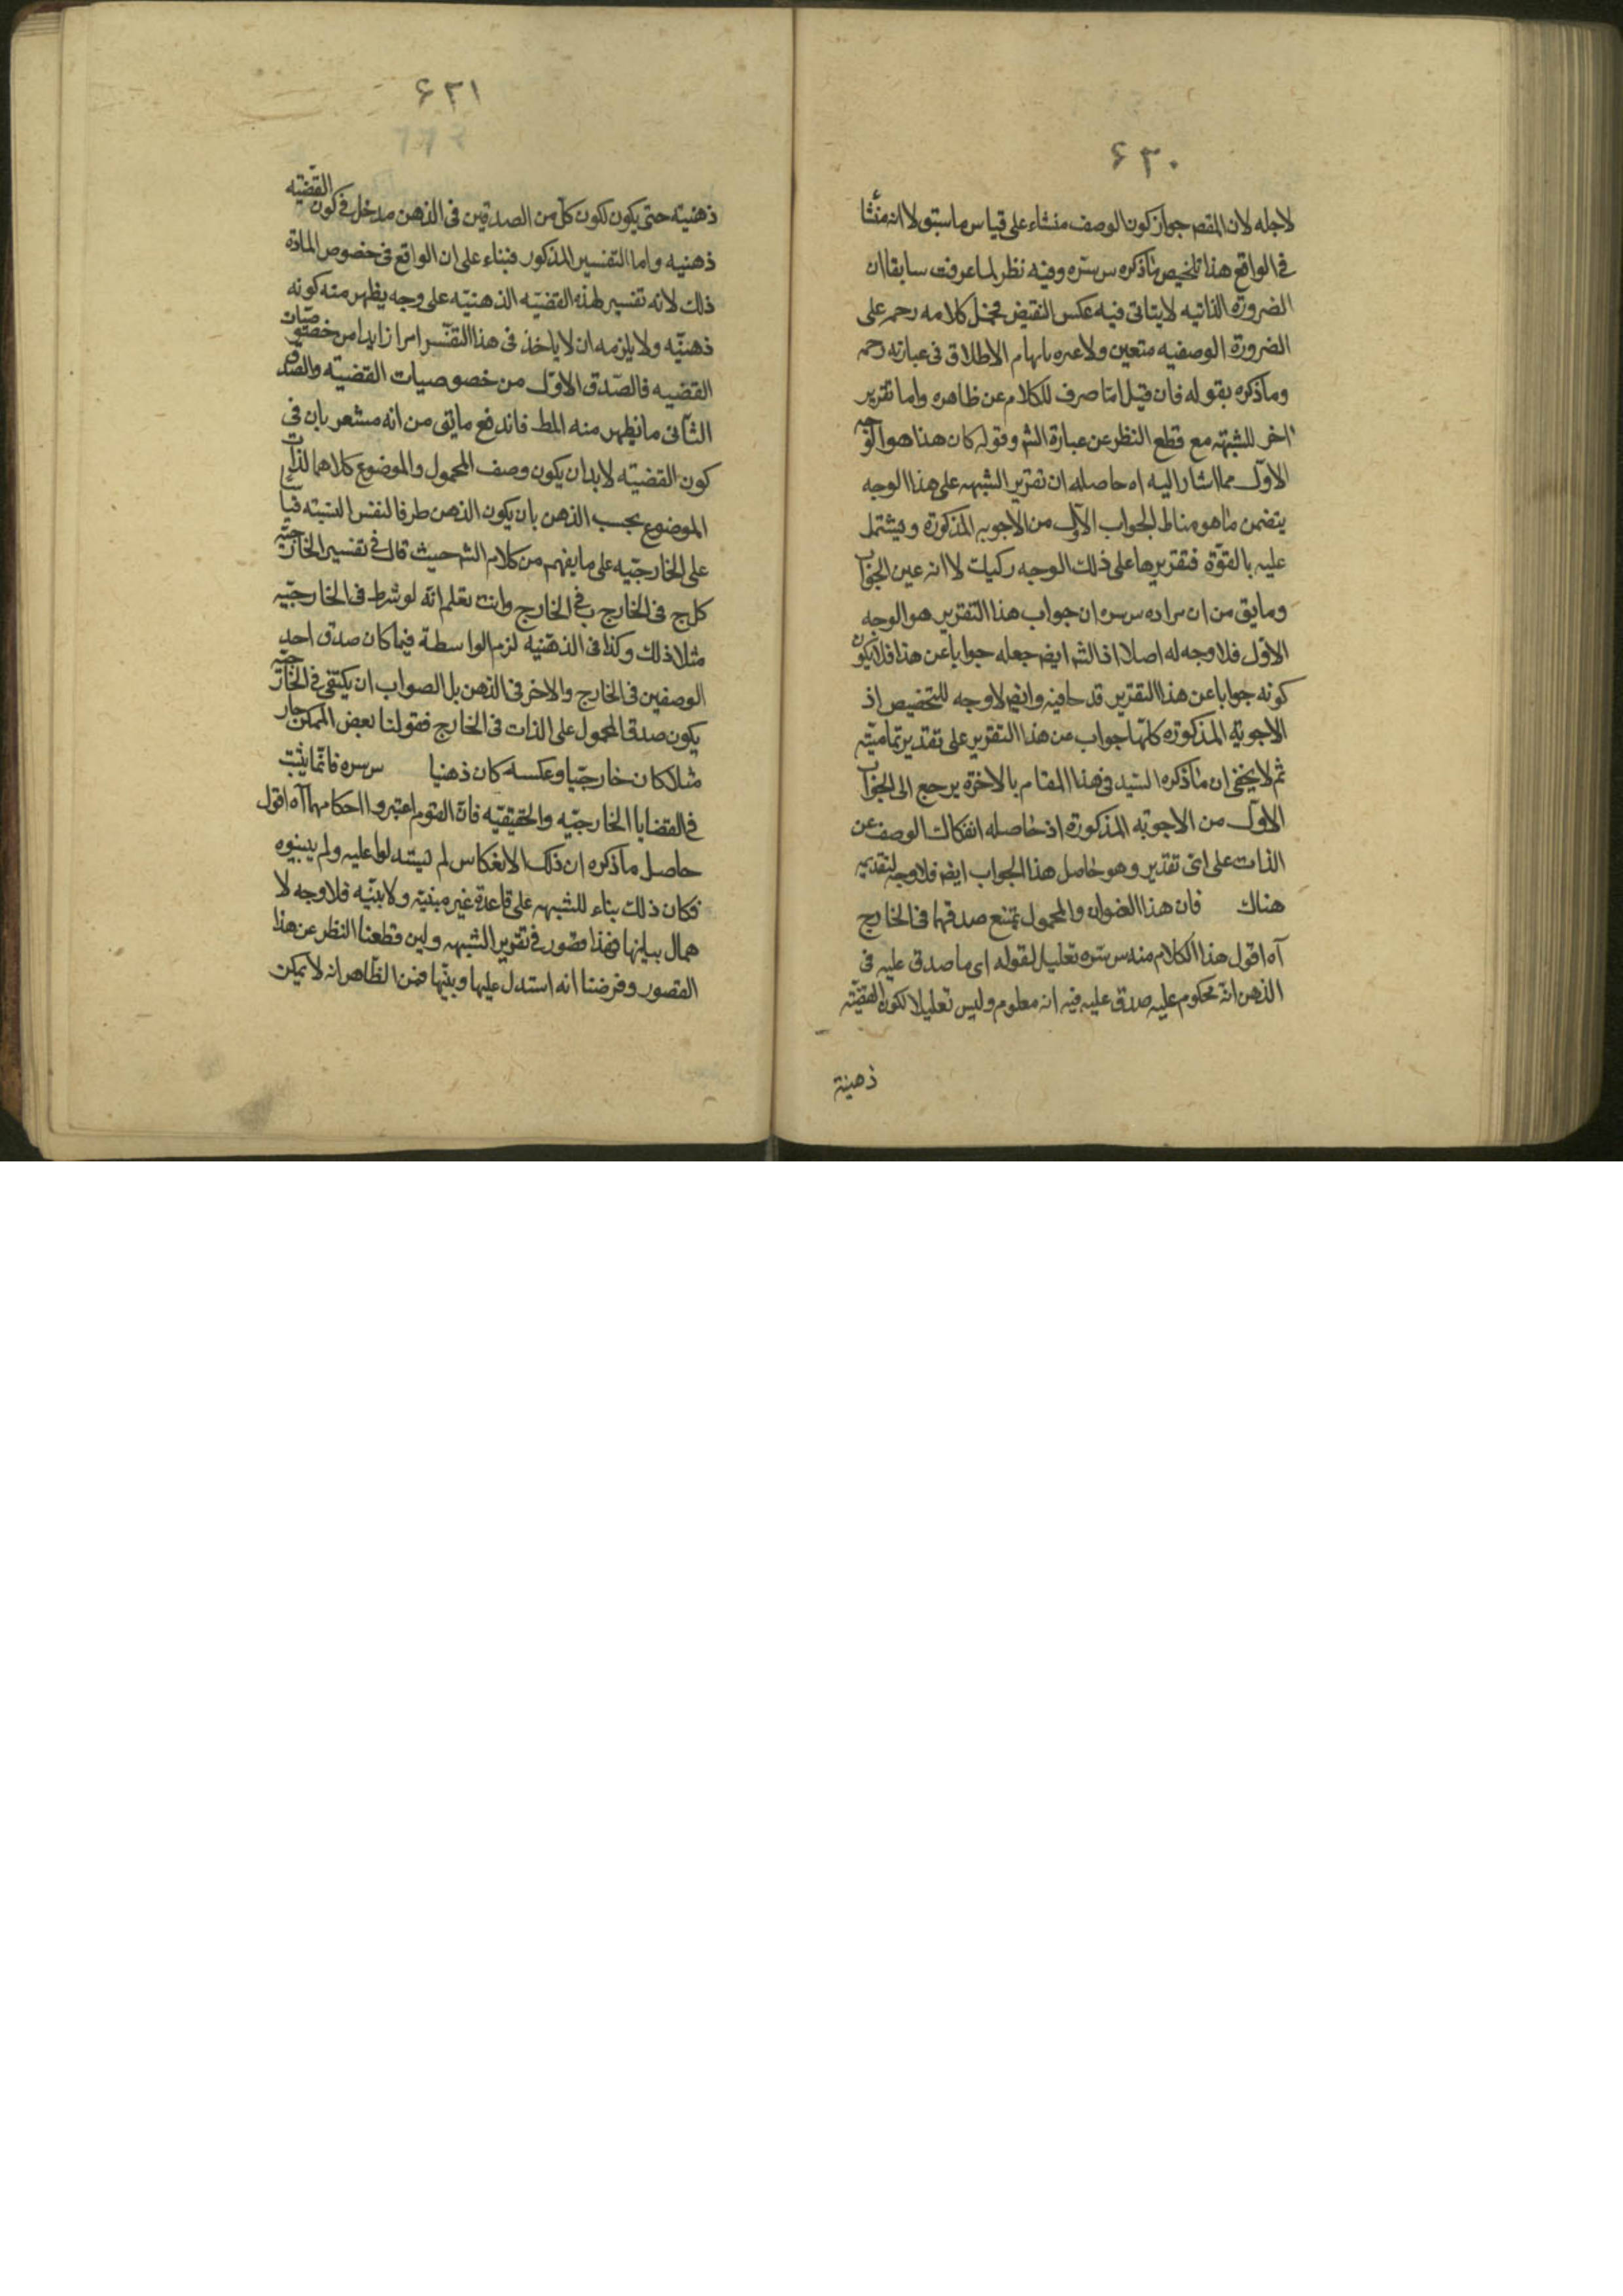 ۶۳۰
لاجله لان المقصـ جواز كون الوصف منشاء على قياس ما سبق لا انه منشا
فى الواقع هذا تلخيص ما ذكره س سره وفيه نظر لما عرفت سابقا ان
الضرورة الذاتيه لا يتاتى فيه عكس النقيض فحمل كلامه رحمه على
الضرورة الوصفيه متعين ولا عبره بابهام الاطلاق فى عبارته رحمه
وما ذكره بقوله فان قيل اما صرف للكلام عن ظاهره واما تقرير
اخر للشبهة مع قطع النظر عن عبارة الشـ وقوله كان هذا هو الوجه
الاول مما اشار اليه اه حاصله ان تقرير الشبهه على هذا الوجه
يتضمن ما هو مناط الجواب الاول من الاجوبه المذكورة ويشتمل
عليه بالقوة فتقريرها على ذلك الوجه ركيك لا انه عين الجواب
وما يق من ان مراده س سره ان جواب هذا التقرير هو الوجه
الاول فلا وجه له اصلا اذ الشـ ايضـ جعله جوابا عن هذا فلا يكون
كونه جوابا عن هذا التقرير قدحا فيه وايضـ لا وجه للتخصيص اذ
الاجوبة المذكورة كلها جواب من هذا التقرير على تقدير تماميته
ثم لا يخفى ان ما ذكره السيد فى هذا المقام بالاخرة يرجع الى الجواب
الاول من الاجوبه المذكورة اذ حاصله انفكاك الوصف عن
الذات على اى تقدير وهو حاصل هذا الجواب ايضـ فلا وجه لتقديمه
هناك فان هذا العنوان والمحمول يمتنع صدقهما فى الخارج
آه اقول هذا الكلام منه س سره تعليل لقوله اى ما صدق عليه فى
الذهن انه محكوم عليه صدق عليه فيه انه معلوم وليس تعليلا لكون القضية
ذهنية
۶۳۱
ذهنية حتى يكون لكون كل من الصدقين فى الذهن مدخل فى كون القضيه
ذهنيه واما التفسير المذكور فبناء على ان الواقع فى خصوص المادة
ذلك لانه تفسير لهذه القضيه الذهنيه على وجه يظهر منه كونه
ذهنيه ولا يلزمه ان لا ياخذ فى هذا التفسير امرا زايدا من خصوصيات
القضيه فالصدق الاول من خصوصيات القضيه والصدق
الثانى ما يظهر منه المط فاندفع ما يتق من انه مشعر بان فى
كون القضيه لا بد ان يكون وصف المحمول والموضوع كلاهما لذات
الموضوع بحسب الذهن بان يكون الذهن ظرفا لنفس النسبته قياسا
على الخارجيه على ما يفهم من كلام الشـ حيث قال فى تفسير الخارجيه
كل ج فى الخارج ب فى الخارج وانت تعلم انه لو شرط فى الخارجيه
مثلا ذلك وكذا فى الذهنيه لزم الواسطة فيما كان صدق احد
الوصفين فى الخارج والاخر فى الذهن بل الصواب ان يكتفى فى الخارجيه
يكون صدق المحمول على الذات فى الخارج فقولنا بعض الممكن حار
مثلا كان خارجيا وعكسه كان ذهنيا س سره فانما يثبت
فى القضايا الخارجيه والحقيقيه فان القوم اعتبروا احكامهما آه اقول
حاصل ما ذكره ان ذلك الانعكاس لم يستدلوا عليه ولم يبينوه
فكان ذلك بناء للشبهه على قاعدة غير مبنية ولا بينه فلا وجه لا
همال بيانها فهذا قصور فى تقرير الشبهه ولين قطعنا النظر عن هذا
القصور وفرضنا انه استدل عليها وبينها فمن الظاهر انه لا يمكن